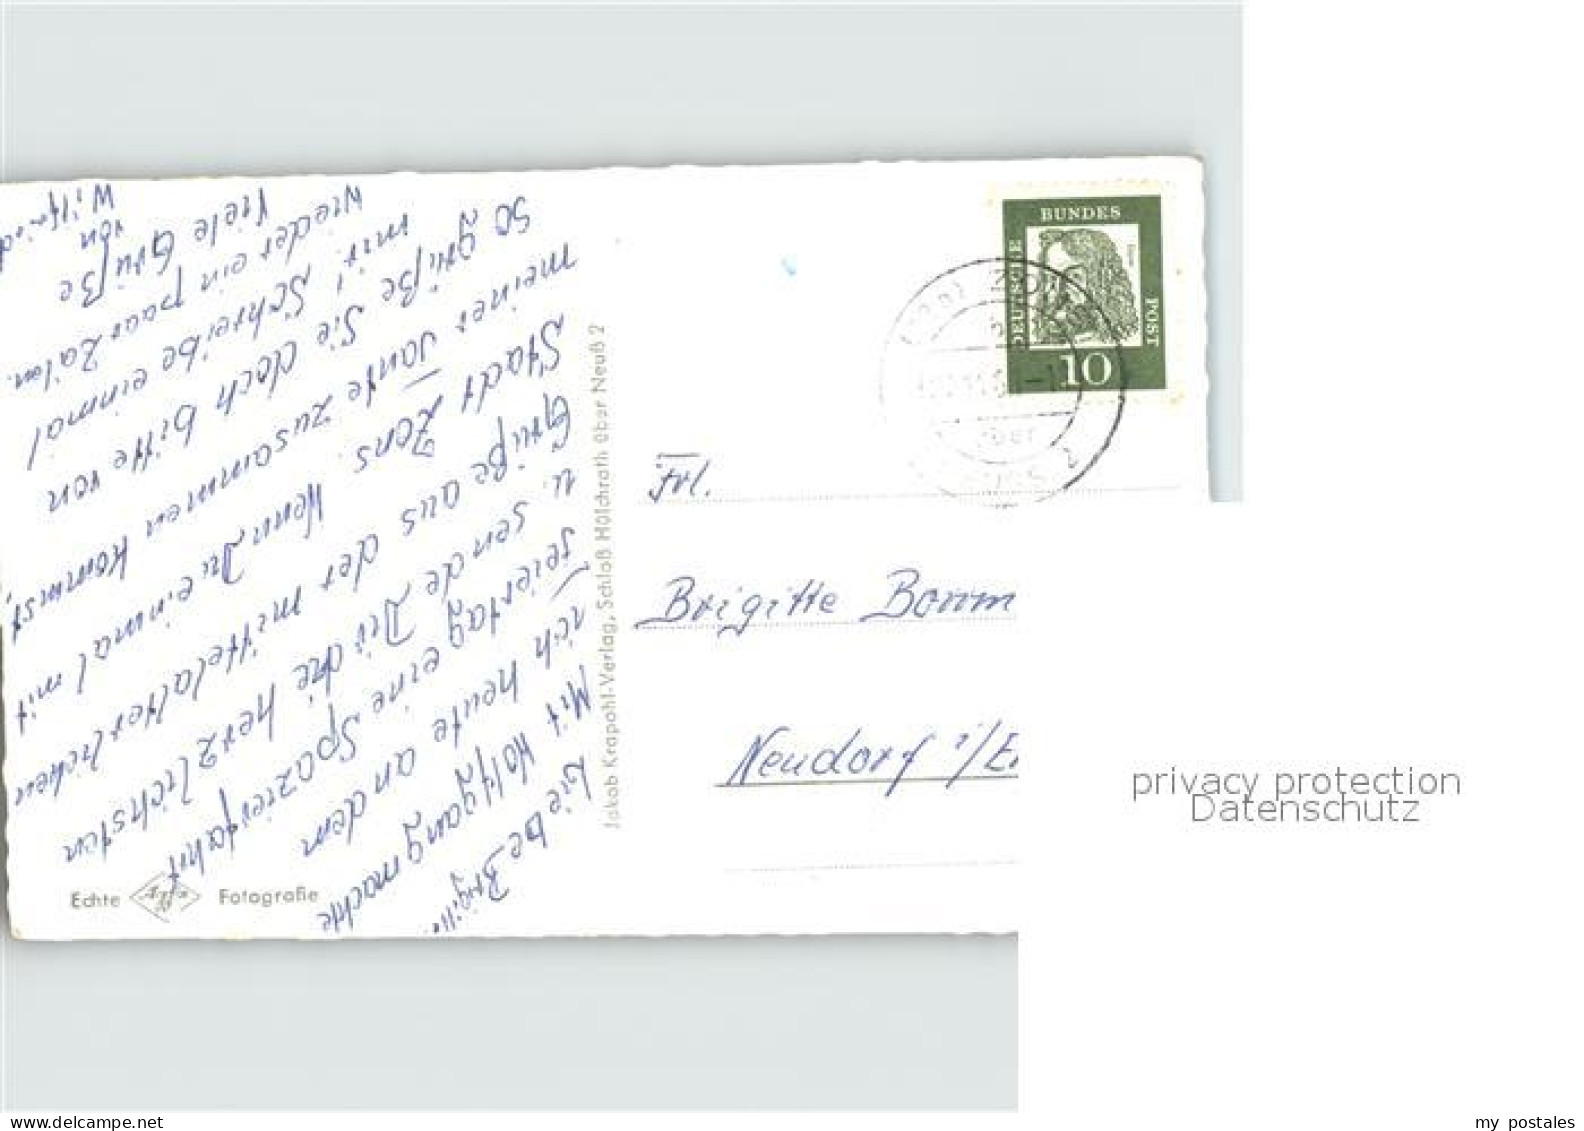 Liebe Brigitte.
Mit Wolfgang machte
ich heute an dem
Feiertag eine Spazierfahrt
u. sende Dir die herzlichsten
Grüße aus der mittelalterlichen
Stadt Zons. Wenn Du einmal mit
meiner Tante zusammen kommst,
so grüße Sie doch bitte von
mir! Schreibe einmal
wieder ein paar Zeilen.
Viele Grüße
von
Wilfried
Echte Agfa Fotografie
Jakob Krapohl-Verlag, Schloß Hülchrath über Neuß 2
DEUTSCHE BUNDES POST
10
Frl.
Brigitte
Neudorf i/E
privacy protection
Datenschutz
my postales